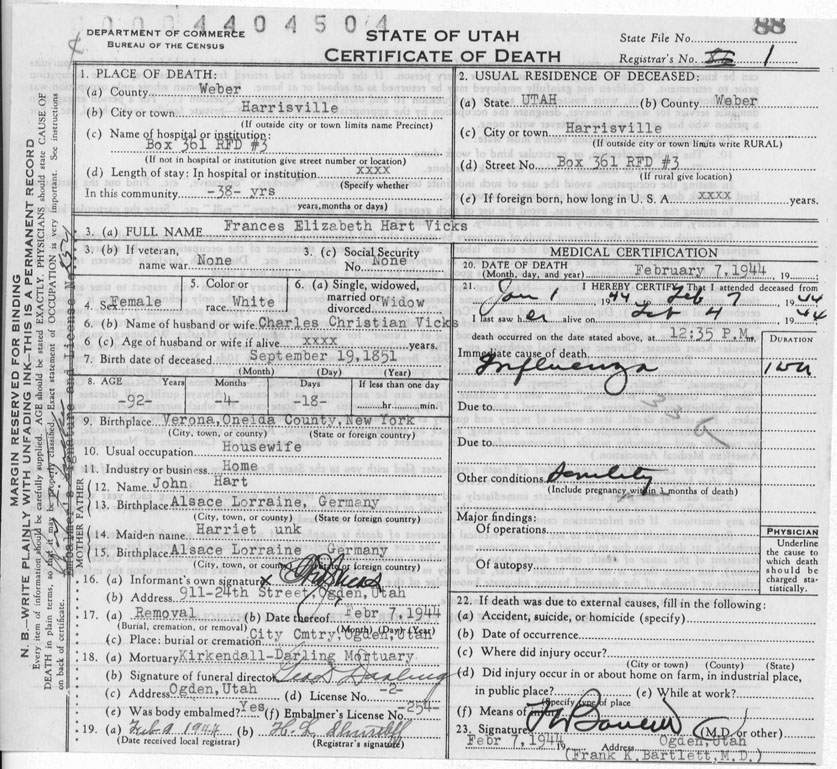 0004404504
88
DEPARTMENT OF COMMERCE
BUREAU OF THE CENSUS
STATE OF UTAH
CERTIFICATE OF DEATH
State File No.
Registrar's No. 1
MARGIN RESERVED FOR BINDING
N. B.—WRITE PLAINLY WITH UNFADING INK—THIS IS A PERMANENT RECORD
Every item of information should be carefully supplied. AGE should be stated EXACTLY. PHYSICIANS should state CAUSE OF
DEATH in plain terms, so that it may be properly classified. Exact statement of OCCUPATION is very important. See instructions
on back of certificate.
Embalmer's Signature and License No.
1. PLACE OF DEATH:
(a) County Weber
(b) City or town Harrisville
(If outside city or town limits name Precinct)
(c) Name of hospital or institution:
Box 361 RFD #3
(If not in hospital or institution give street number or location)
(d) Length of stay: In hospital or institution xxxx
(Specify whether
In this community -38- yrs
years, months or days)
2. USUAL RESIDENCE OF DECEASED:
(a) State UTAH (b) County Weber
(c) City or town Harrisville
(If outside city or town limits write RURAL)
(d) Street No. Box 361 RFD #3
(If rural give location)
(e) If foreign born, how long in U. S. A. xxxx years.
3. (a) FULL NAME Frances Elizabeth Hart Vicks
3. (b) If veteran, name war None
3. (c) Social Security No. None
4. Sex Female
5. Color or race White
6. (a) Single, widowed, married or divorced Widow
6. (b) Name of husband or wife Charles Christian Vicks
6 (c) Age of husband or wife if alive xxxx years.
7. Birth date of deceased September 19,1851
(Month) (Day) (Year)
8. AGE Years Months Days If less than one day
-92- -4- -18- hr. min.
9. Birthplace Verona,Oneida County,New York
(City, town, or county) (State or foreign country)
10. Usual occupation Housewife
11. Industry or business Home
FATHER
(12. Name John Hart
(13. Birthplace Alsace Lorraine, Germany
(City, town, or county) (State or foreign country)
MOTHER
(14. Maiden name Harriet unk
(15. Birthplace Alsace Lorraine Germany
(City, town, or county) (State or foreign country)
16. (a) Informant's own signature x
(b) Address 911-24th Street,Ogden,Utah
17. (a) Removal (b) Date thereof Febr 7,1944
(Burial, cremation, or removal) (Month) (Day) (Year)
(c) Place: burial or cremation City Cmtry,Ogden,Utah
18. (a) Mortuary Kirkendall-Darling Mortuary
(b) Signature of funeral director Darling
(c) Address Ogden,Utah (d) License No. -2-
(e) Was body embalmed? Yes (f) Embalmer's License No. -254-
19. (a) Feb 1944 (b)
(Date received local registrar) (Registrar's signature)
MEDICAL CERTIFICATION
20. DATE OF DEATH February 7,1944 19
(Month, day, and year)
21. I HEREBY CERTIFY That I attended deceased from
Jan 1 1944 Feb 7 1944
I last saw her alive on Feb 4 1944
death occurred on the date stated above, at 12:35 P.M.
DURATION
Immediate cause of death
Influenza 1 wk
336
Due to
Due to
Other conditions Senility
(Include pregnancy within 3 months of death)
Major findings:
Of operations
Of autopsy
PHYSICIAN
Underline
the cause to
which death
should be
charged sta-
tistically.
22. If death was due to external causes, fill in the following:
(a) Accident, suicide, or homicide (specify)
(b) Date of occurrence
(c) Where did injury occur?
(City or town) (County) (State)
(d) Did injury occur in or about home on farm, in industrial place,
in public place? (e) While at work?
(Specify type of place
(f) Means of injury
23. Signature (M.D. or other)
Febr 7,1944 19 Address Ogden,Utah
(Frank K.Bartlett,M.D.)